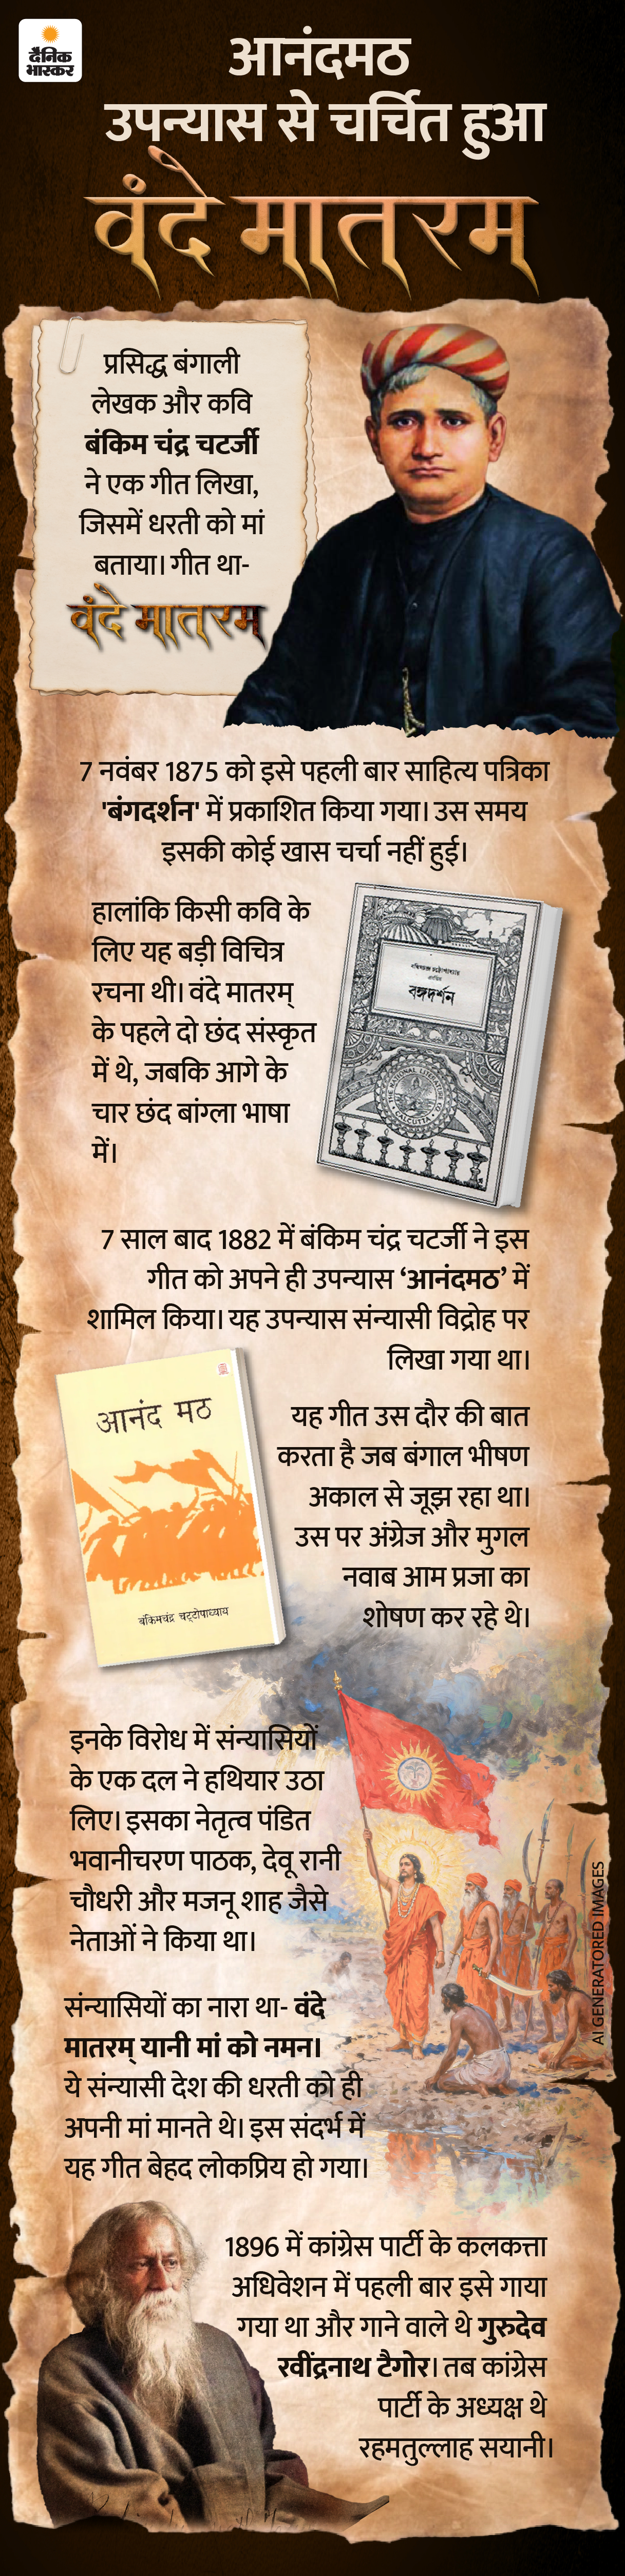 दैनिक
भास्कर
आनंदमठ
उपन्यास से चर्चित हुआ
वंदे मातरम्
प्रसिद्ध बंगाली
लेखक और कवि
बंकिम चंद्र चटर्जी
ने एक गीत लिखा,
जिसमें धरती को मां
बताया। गीत था-
वंदे मातरम्
7 नवंबर 1875 को इसे पहली बार साहित्य पत्रिका
'बंगदर्शन' में प्रकाशित किया गया। उस समय
इसकी कोई खास चर्चा नहीं हुई।
हालांकि किसी कवि के
लिए यह बड़ी विचित्र
रचना थी। वंदे मातरम्
के पहले दो छंद संस्कृत
में थे, जबकि आगे के
चार छंद बांग्ला भाषा
में।
বঙ্গদর্শন
7 साल बाद 1882 में बंकिम चंद्र चटर्जी ने इस
गीत को अपने ही उपन्यास ‘आनंदमठ’ में
शामिल किया। यह उपन्यास संन्यासी विद्रोह पर
लिखा गया था।
आनंद मठ
बंकिमचंद्र चट्टोपाध्याय
यह गीत उस दौर की बात
करता है जब बंगाल भीषण
अकाल से जूझ रहा था।
उस पर अंग्रेज और मुगल
नवाब आम प्रजा का
शोषण कर रहे थे।
इनके विरोध में संन्यासियों
के एक दल ने हथियार उठा
लिए। इसका नेतृत्व पंडित
भवानीचरण पाठक, देवू रानी
चौधरी और मजनू शाह जैसे
नेताओं ने किया था।
AI GENERATORED IMAGES
संन्यासियों का नारा था- वंदे
मातरम् यानी मां को नमन।
ये संन्यासी देश की धरती को ही
अपनी मां मानते थे। इस संदर्भ में
यह गीत बेहद लोकप्रिय हो गया।
1896 में कांग्रेस पार्टी के कलकत्ता
अधिवेशन में पहली बार इसे गाया
गया था और गाने वाले थे गुरुदेव
रवींद्रनाथ टैगोर। तब कांग्रेस
पार्टी के अध्यक्ष थे
रहमतुल्लाह सयानी।